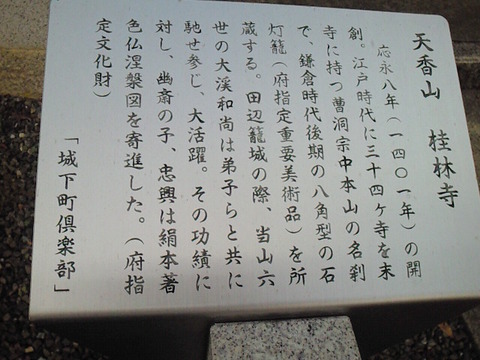 天香山　桂林寺
応永八年（一四〇一年）の開
創。江戸時代に三十四ヶ寺を末
寺に持つ曹洞宗中本山の名刹
で、鎌倉時代後期の八角型の石
灯籠（府指定重要美術品）を所
蔵する。田辺籠城の際、当山六
世の大溪和尚は弟子らと共に
馳せ参じ、大活躍。その功績に
対し、幽斎の子、忠興は絹本著
色仏涅槃図を寄進した。（府指
定文化財）
「城下町倶楽部」